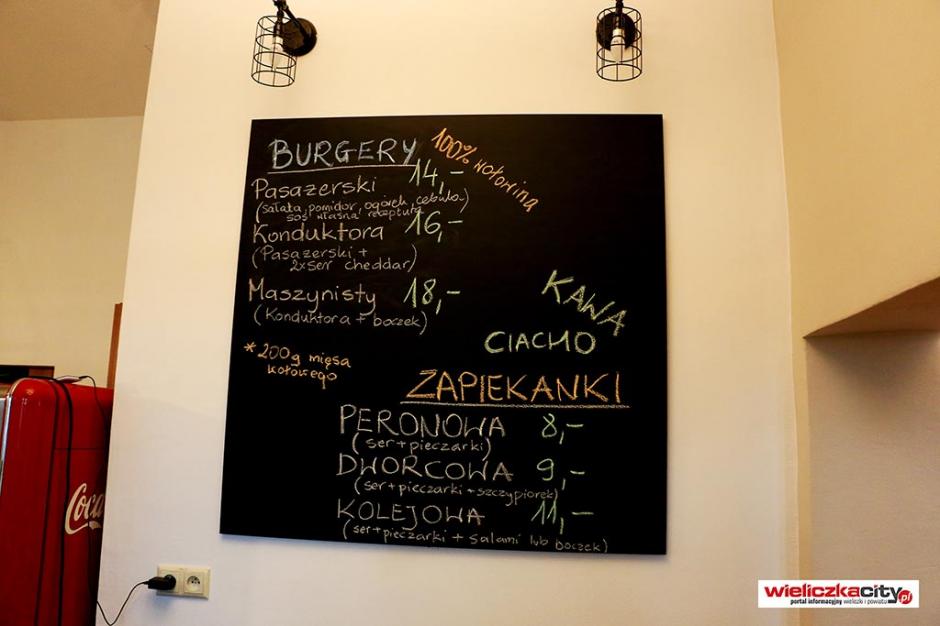 BURGERY
100% wołowina
Pasażerski 14,-
(sałata, pomidor, ogórek, cebula
sos własna receptura)
Konduktora 16,-
(Pasażerski +
2xser cheddar)
Maszynisty 18,-
(Konduktora + boczek)
* 200g mięsa
wołowego
KAWA
CIACHO
ZAPIEKANKI
PERONOWA 8,-
(ser + pieczarki)
DWORCOWA 9,-
(ser + pieczarki + szczypiorek)
KOLEJOWA 11,-
(ser + pieczarki + salami lub boczek)
Coca
wieliczkacity.pl
portal informacyjny wieliczki i powiatu